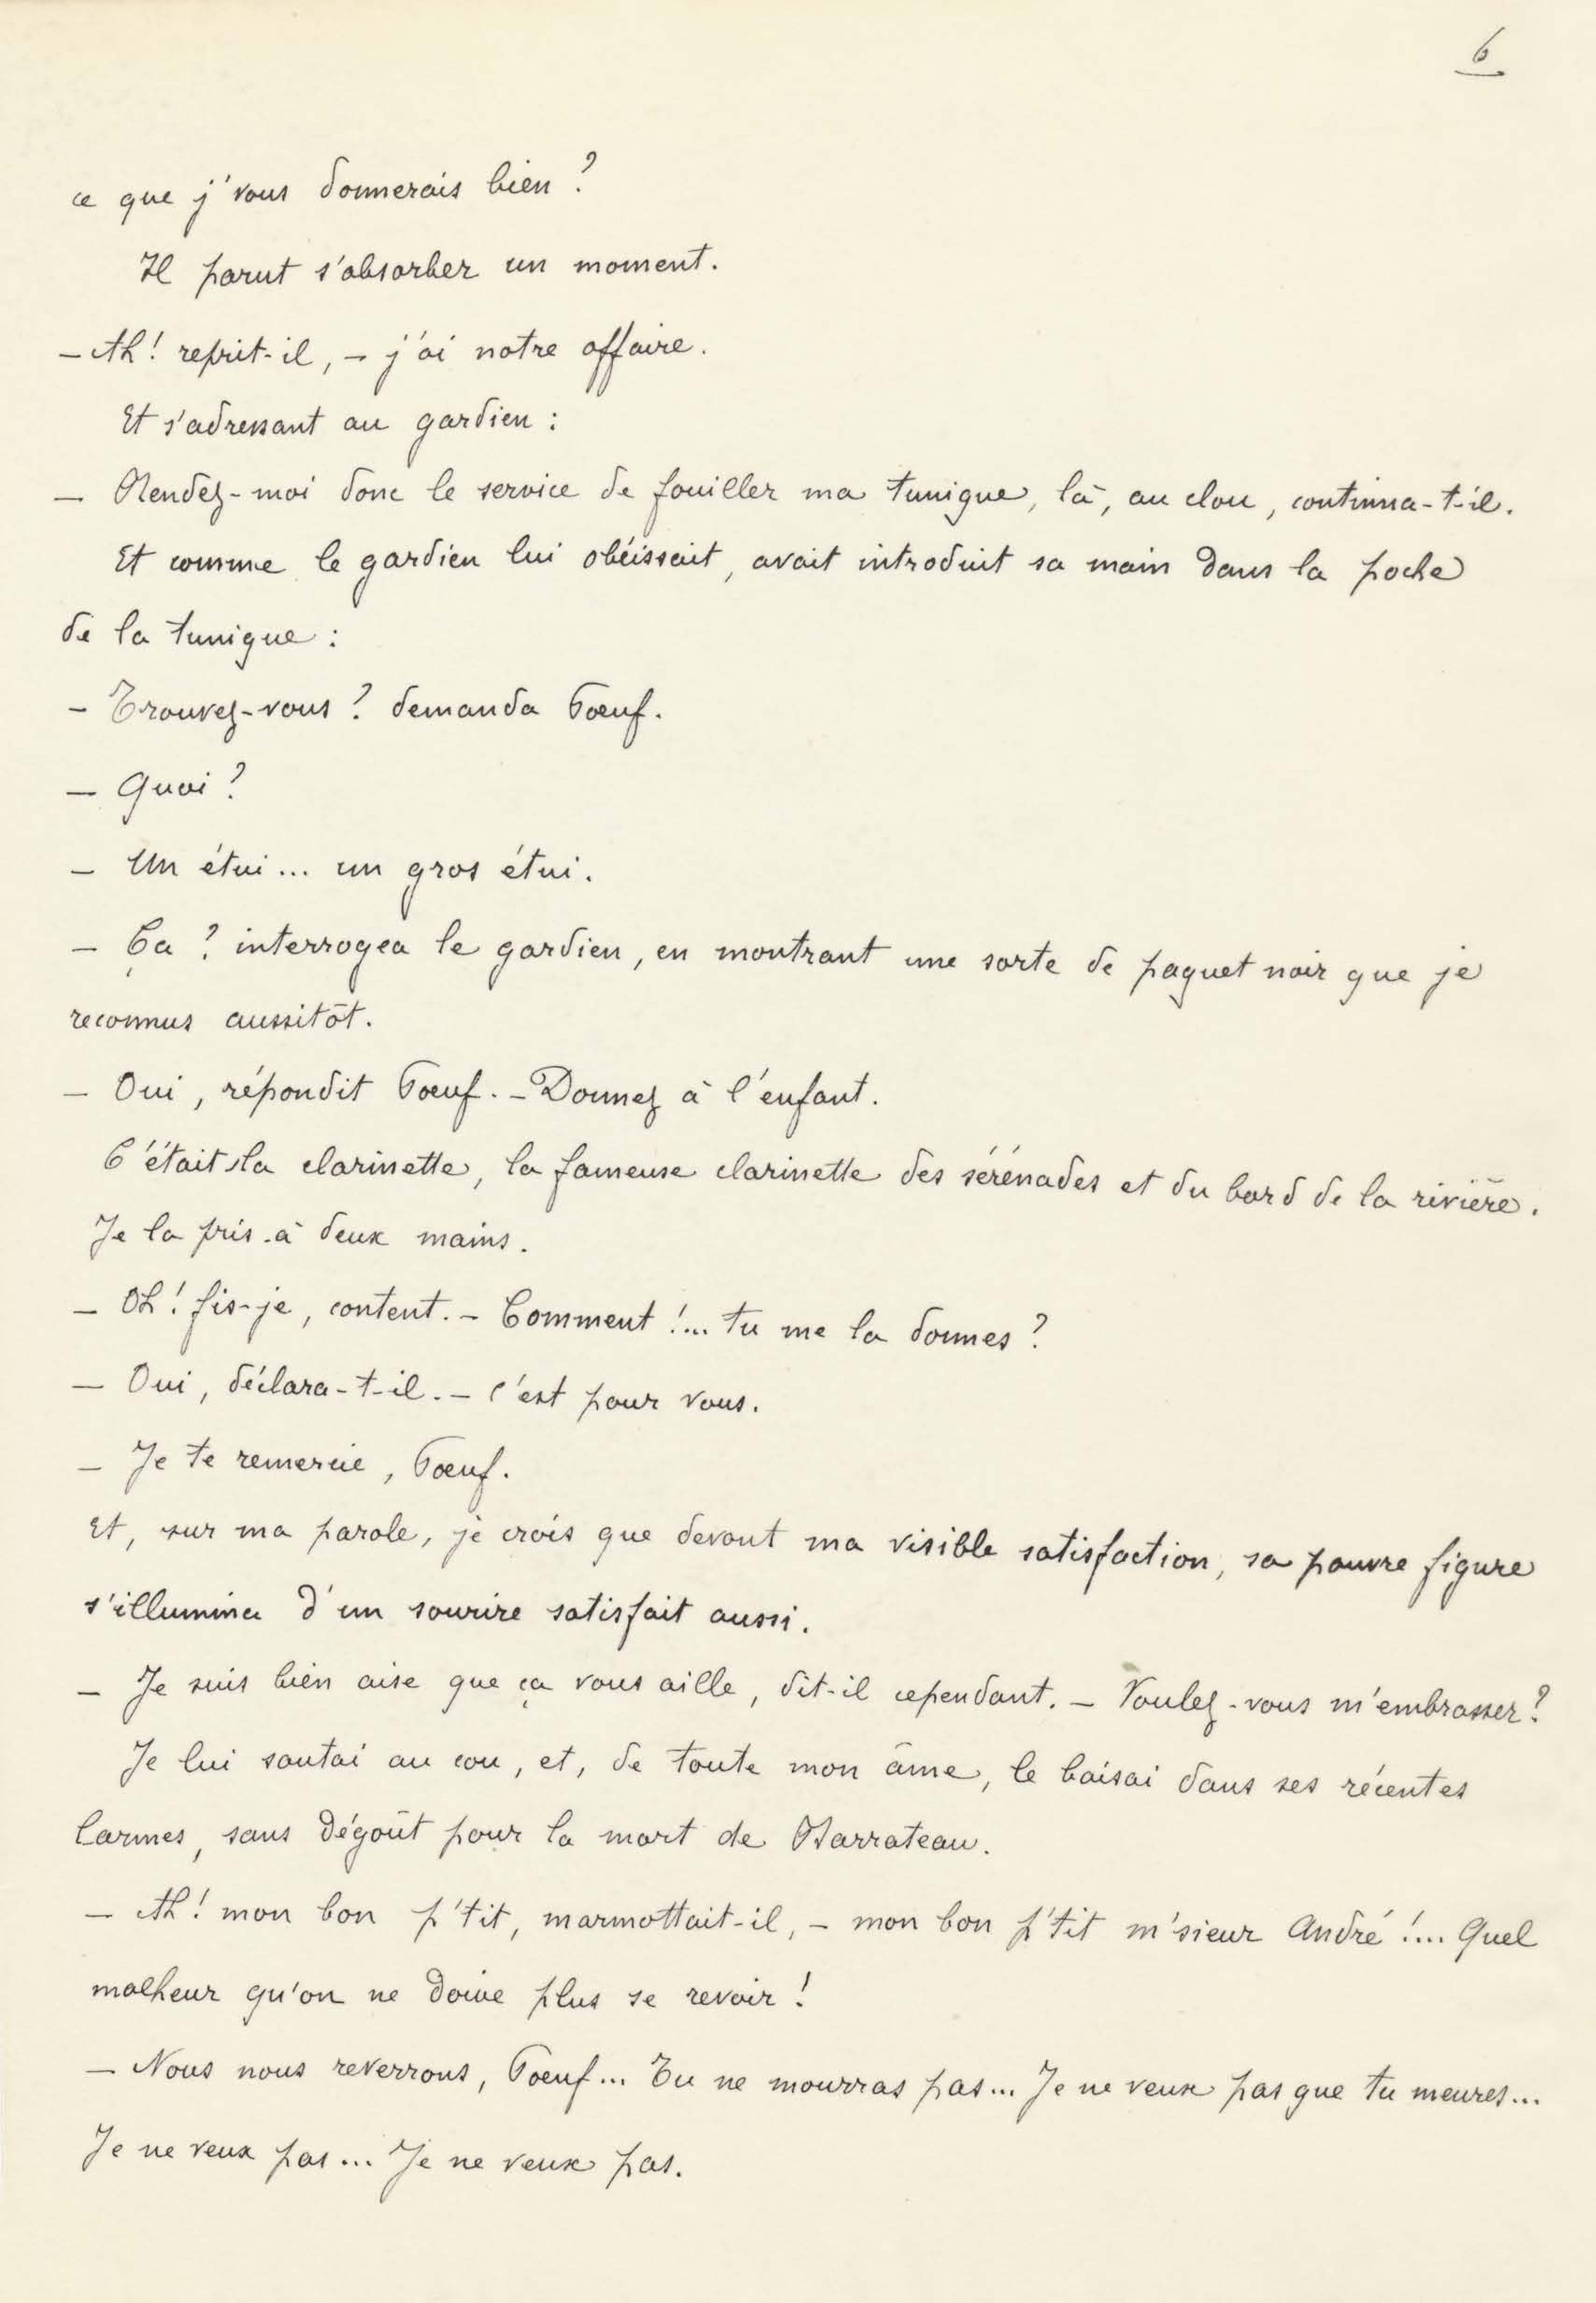 6
ce que j'vous donnerais bien ?
Il parut s'absorber un moment.
— Ah ! reprit-il, — j'ai notre affaire.
Et s'adressant au gardien :
— Rendez-moi donc le service de fouiller ma tunique, là, au clou, continua-t-il.
Et comme le gardien lui obéissait, avait introduit sa main dans la poche
de la tunique :
— Trouvez-vous ? demanda Fœuf.
— Quoi ?
— Un étui... un gros étui.
— Ça ? interrogea le gardien, en montrant une sorte de paquet noir que je
reconnus aussitôt.
— Oui, répondit Fœuf. — Donnez à l'enfant.
C'était la clarinette, la fameuse clarinette des sérénades et du bord de la rivière.
Je la pris à deux mains.
— Oh ! fis-je, content. — Comment !... tu me la donnes ?
— Oui, déclara-t-il. — C'est pour vous.
— Je te remercie, Fœuf.
Et, sur ma parole, je crois que devant ma visible satisfaction, sa pauvre figure
s'illumina d'un sourire satisfait aussi.
— Je suis bien aise que ça vous aille, dit-il cependant. — Voulez-vous m'embrasser ?
Je lui sautai au cou, et, de toute mon âme, le baisai dans ses récentes
larmes, sans dégoût pour la mort de Barrateau.
— Ah ! mon bon p'tit, marmottait-il, — mon bon p'tit m'sieur André !... Quel
malheur qu'on ne doive plus se revoir !
— Nous nous reverrons, Fœuf... Tu ne mourras pas... Je ne veux pas que tu meures...
Je ne veux pas... Je ne veux pas.